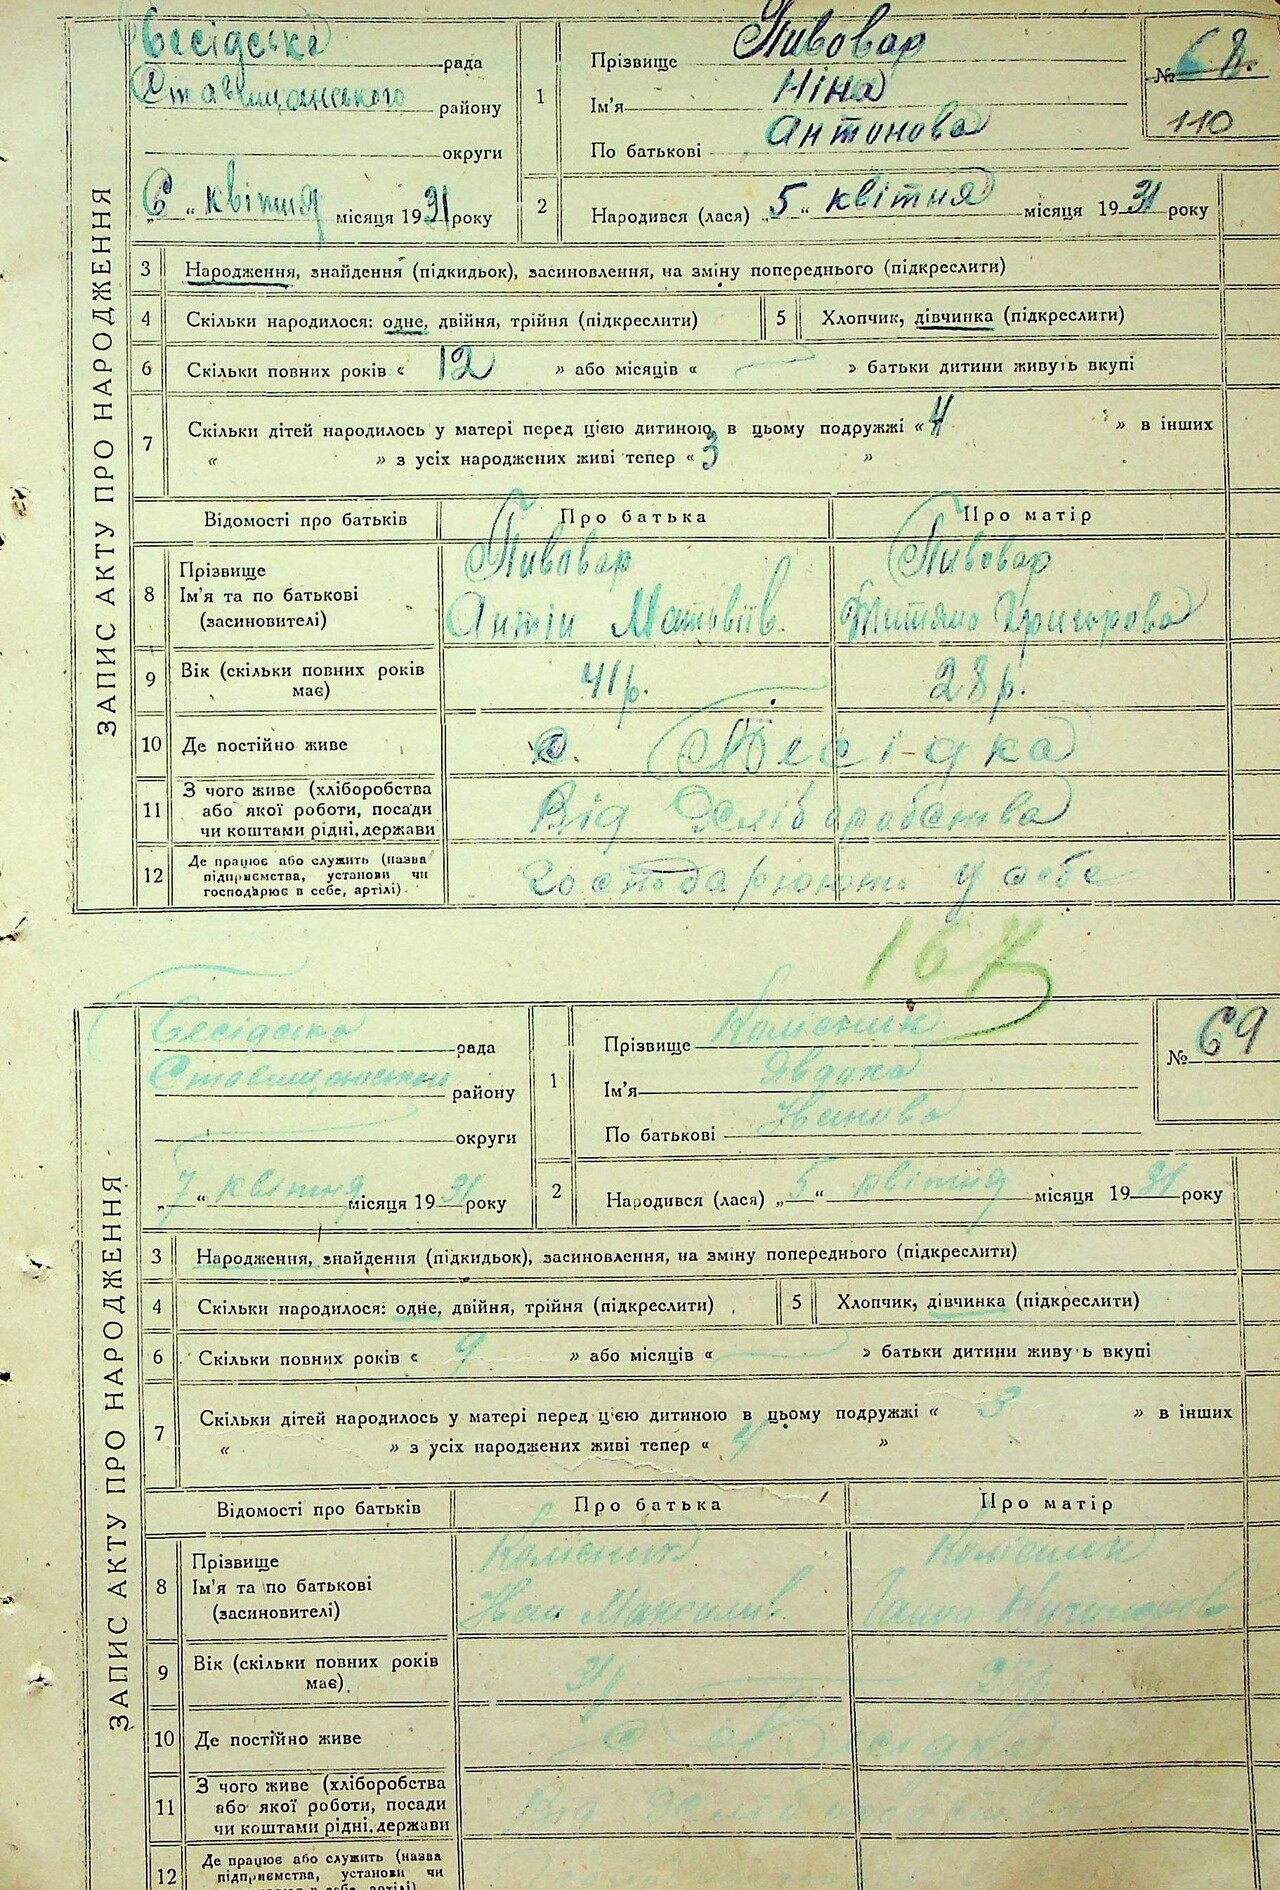 ЗАПИС АКТУ ПРО НАРОДЖЕННЯ
Бесідська рада
Ставищанського району
округи
„6“ квітня місяця 1931 року
1
Прізвище Пивовар
Ім'я Ніна
По батькові Антонова
№ 68.
110
2
Народився (лася) „5“ квітня місяця 1931 року
3 Народження, знайдення (підкидьок), засиновлення, на зміну попереднього (підкреслити)
4 Скільки народилося: одне, двійня, трійня (підкреслити)
5 Хлопчик, дівчинка (підкреслити)
6 Скільки повних років « 12 » або місяців « — » батьки дитини живуть вкупі
7 Скільки дітей народилось у матері перед цією дитиною в цьому подружжі « 4 » в інших
« » з усіх народжених живі тепер « 3 »
Відомості про батьків Про батька Про матір
8 Прізвище Пивовар Пивовар
Ім'я та по батькові Антін Матвіїв. Титяна Григорова
(засиновителі)
9 Вік (скільки повних років має) 41 р. 28 р.
10 Де постійно живе с. Бесідка
11 З чого живе (хліборобства
або якої роботи, посади Від Хліборобства
чи коштами рідні, держави
12 Де працює або служить (назва
підприємства, установи чи господарюють у себе
господарює в себе, артілі)
167
ЗАПИС АКТУ ПРО НАРОДЖЕННЯ
Бесідська рада
Ставищанський району
округи
„7“ квітня місяця 1931 року
1
Прізвище Колісник
Ім'я Явдоха
По батькові Иванова
№ 69
2
Народився (лася) „5“ квітня місяця 1931 року
3 Народження, знайдення (підкидьок), засиновлення, на зміну попереднього (підкреслити)
4 Скільки народилося: одне, двійня, трійня (підкреслити)
5 Хлопчик, дівчинка (підкреслити)
6 Скільки повних років « 9 » або місяців « — » батьки дитини живуть вкупі
7 Скільки дітей народилось у матері перед цією дитиною в цьому подружжі « 3 » в інших
« » з усіх народжених живі тепер « 4 »
Відомості про батьків Про батька Про матір
8 Прізвище Колісник Колісник
Ім'я та по батькові Иван Максимів Ганна
(засиновителі)
9 Вік (скільки повних років має) 31 р
10 Де постійно живе с Бесідка
11 З чого живе (хліборобства
або якої роботи, посади Від Хліборобства
чи коштами рідні, держави
12 Де працює або служить (назва
підприємства, установи чи